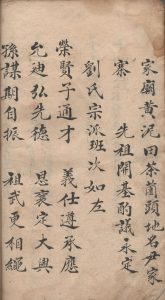 家廟黄泥田茶蓢頭地名尹家
寨　先祖開基酌議永定
劉氏宗派班次如左
榮賢子通才　義仕遵承應
允迪弘先德　恩褒定大興
孫謀期自振　祖武更相繩